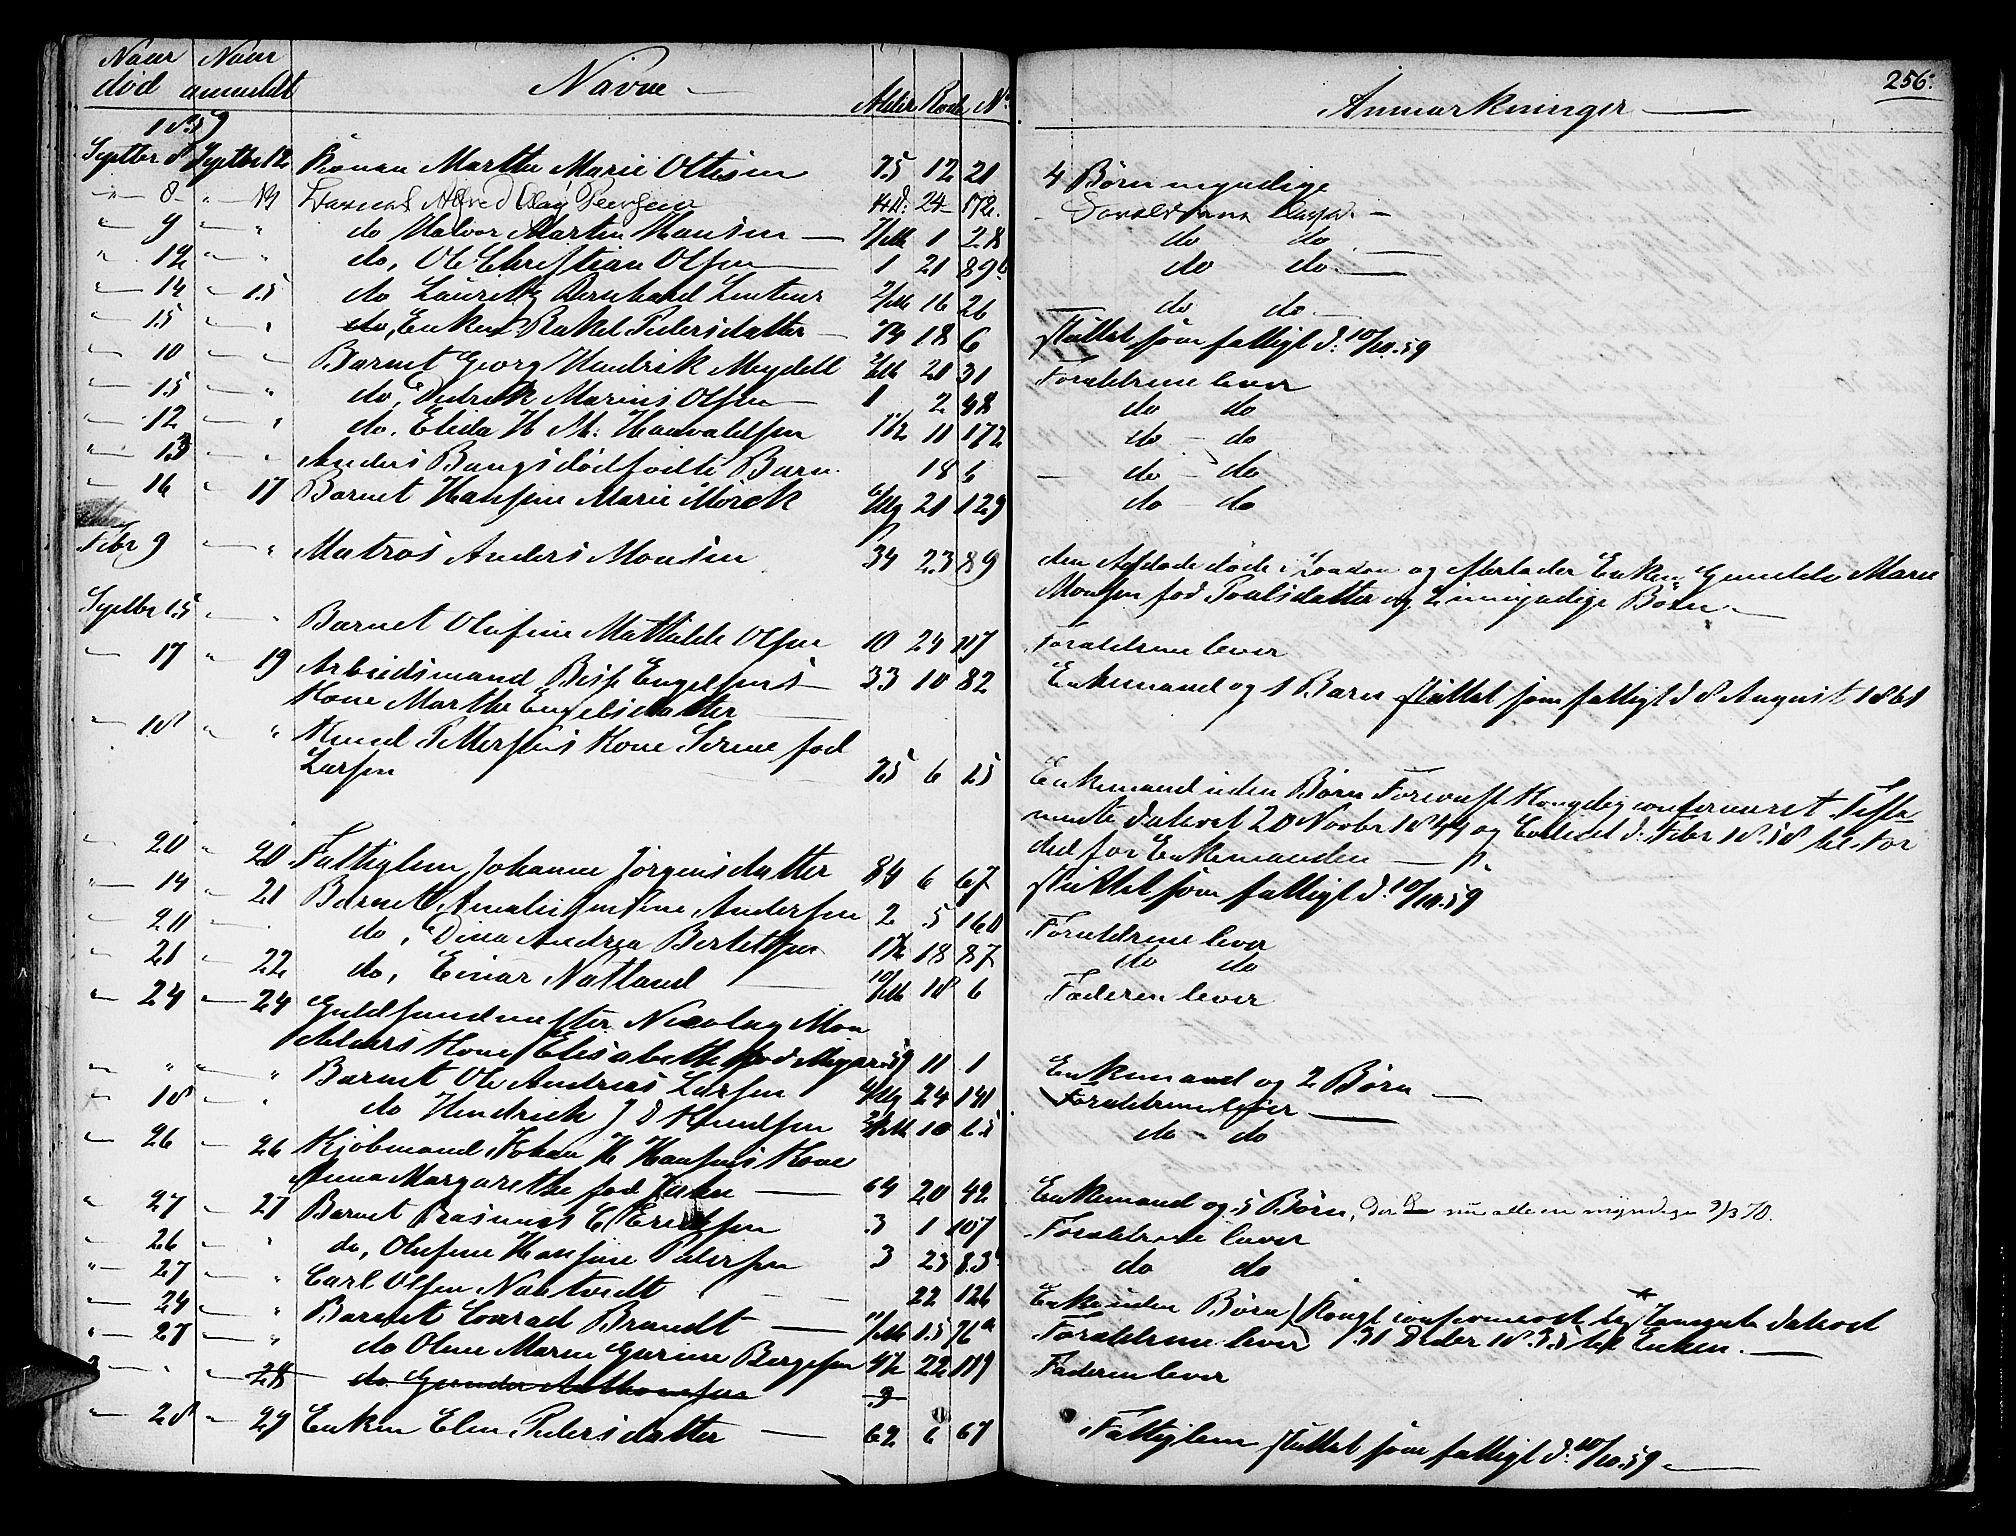 Naar død Naar anmeldt Navne Alder Rode No
Anmærkninger 256
1859
Septbr 8 Septbr 12 Konen Marthe Marie Ottesen 75 12 21 4 Børn myndige
" 8 Alfred 24 172
" 9 " " do Halvor Martin Hansen 7/M 1 28 do do
" 12 " " do, Ole Christian Olsen 1 21 89 b do do
" 14 " 15 do Lauritz Bernhard 2/M 16 26 do do
" 15 " " Enken Rakel Pedersdatter 74 18 6 sluttet som fattigt d. 10/10.59
" 10 " " Barnet Georg Hendrik Meydell 20 31 Forældrene lever
" 15 " " do, Didrik Marius Olsen 1 2 48 do do
" 12 " " do. Elida H. M. Haavaldsen 1 1/2 11 172 do do
" 13 " " Anders Bangs dødfødte Barn 18 6 do do
" 16 " 17 Barnet Hansine Marie Mørck 21 129 do do
Febr 9 " " Matros Anders Monsen 34 23 89 den Afdøde døde i London og efterlader Enken Gunilde Marie
Monsen fød Poulsdatter og 2 umyndige Børn
Septbr 15 " " Barnet Olufine Mathilde Olsen 10 24 107 Forældrene lever
" 17 " 19 Arbeidsmand Engelsens 33 10 82 Enkemand og 1 Barn sluttet som fattigt d 8 August 1861
Kone Marthe Engelsdatter
" 18 " " Knud Pettersens Kone Serine fød
Larsen 75 6 25 Enkemand uden Børn Forevist Kongelig confirmeret Testa
mente dateret 20 Novbr 1844 og d. Febr 1858 til For
del for Enkemanden
" 20 " 20 Fattiglem Johanne Jørgensdatter 84 6 67 sluttet som fattigt d. 10/10.59
" 14 " 21 Barnet Amalie Andersen 2 5 160 Forældrene lever
" 20 " do, Dina Andrea Bertelsen 1 1/2 18 87 do do
" 21 " 22 do, Einar Natland 10/M 18 6 Faderen lever
" 24 " 24 Guldsmedmester Nicolay
Kone Elisabeth fød Meyer 59 11 1 Enkemand og 2 Børn
" " " " Barnet Ole Andreas Larsen 24 141 Forældrene lever
" 18 " " do Hendrick J D Knudsen 10 25 do do
" 26 " 26 Kjøbmand Johan H Hansens Kone
Anna Margarethe fød 64 20 42 Enkemand og 5 Børn, der nu alle ere myndige 9/3 70.
" 27 " 27 Barnet Rasmus C. Eriksen 3 1 107 Forældrene lever
" 26 " do, Olufine Hansine Pedersen 3 23 83 do do
" 27 " " Carl Olsen Nattvedt 22 126 Enke uden Børn Kongl confirmeret Testamente dateret
" 24 " " Barnet Conrad Brandt 11/M 15 76 a Forældrene lever 31 Decbr 1835 til Enken.
" 27 " " do Oline Marie Gurine Børgesen 4 1/2 22 119 Faderen lever
" " " 28 do Gunder Anthonesen 3
" 28 " 29 Enken Elen Pedersdatter 62 6 67 Fattiglem sluttet som fattigt d. 10/10.59